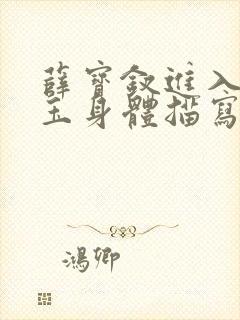 薛寶釵進入
玉身體描寫
鴻卿